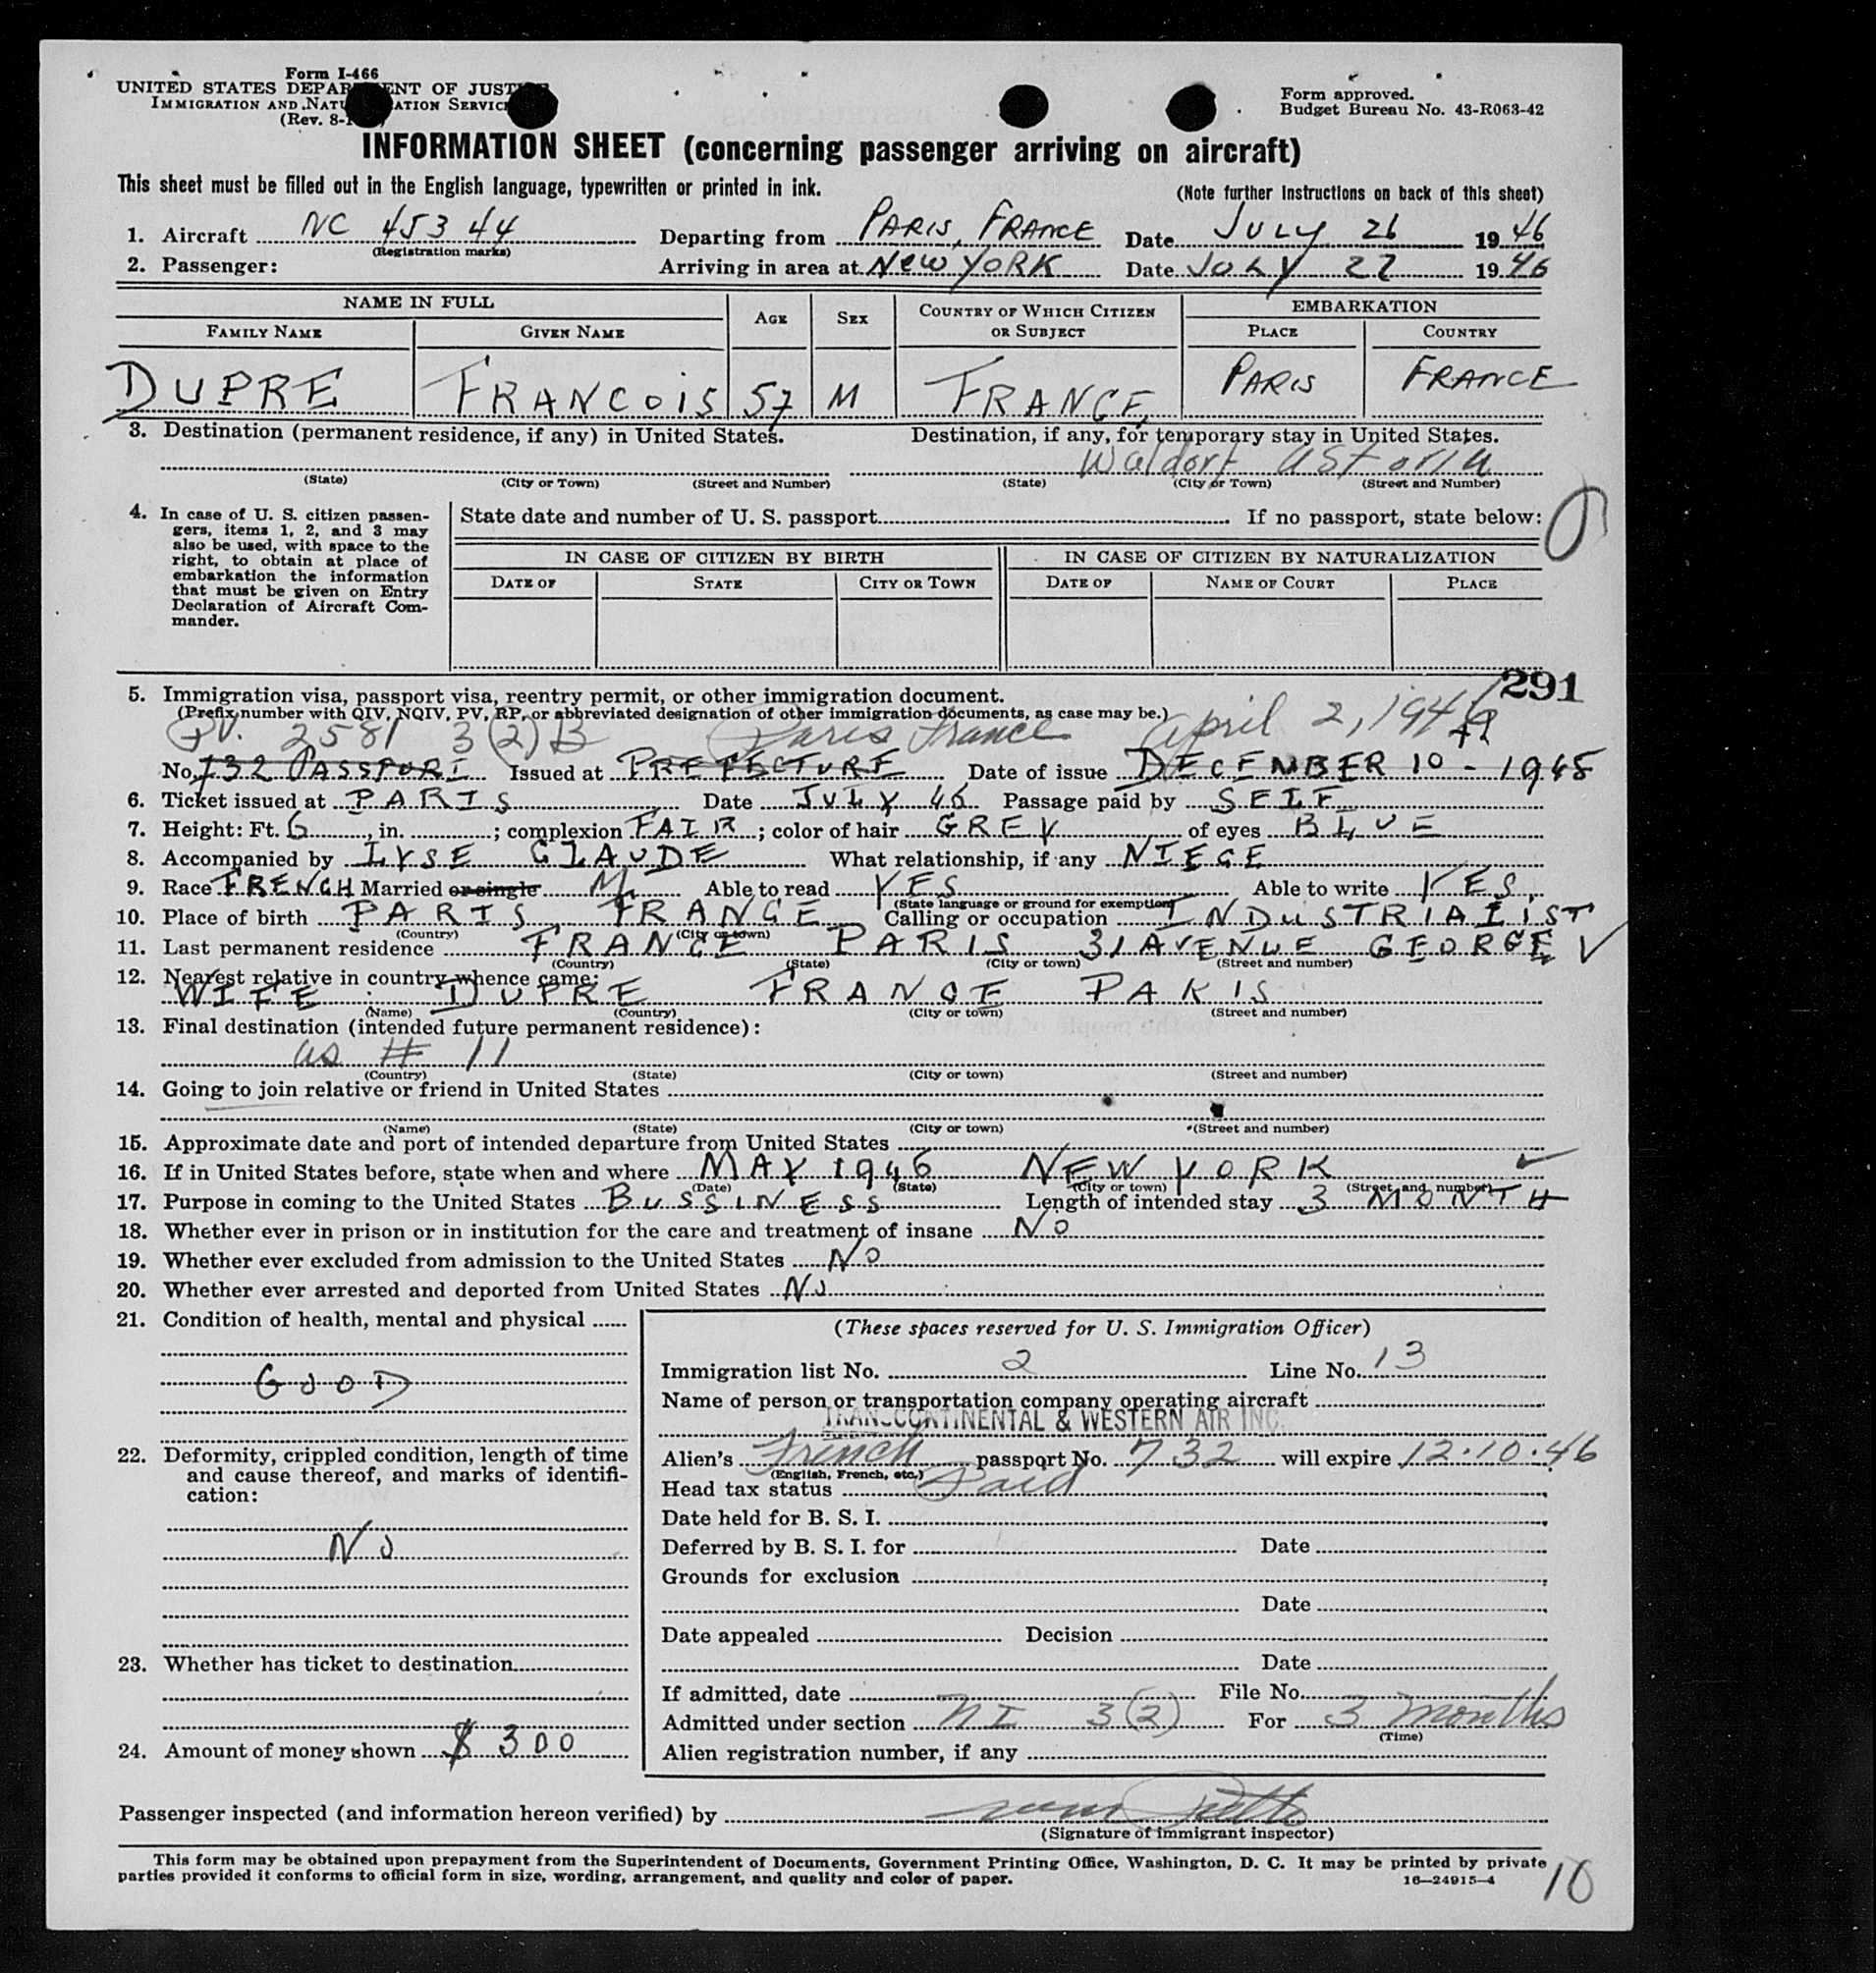 Form I-466
UNITED STATES DEPAR ENT OF JUST
IMMIGRATION AND NATU ATION SERVIC
(Rev. 8-1
Form approved.
Budget Bureau No. 43-R063-42
INFORMATION SHEET (concerning passenger arriving on aircraft)
This sheet must be filled out in the English language, typewritten or printed in ink. (Note further instructions on back of this sheet)
1. Aircraft NC 45344 Departing from PARIS, FRANCE Date JULY 26 1946
(Registration marks)
2. Passenger: Arriving in area at NEW YORK Date JULY 27 1946
NAME IN FULL AGE SEX COUNTRY OF WHICH CITIZEN OR SUBJECT EMBARKATION
FAMILY NAME GIVEN NAME PLACE COUNTRY
DUPRE FRANCOIS 57 M FRANCE PARIS FRANCE
3. Destination (permanent residence, if any) in United States. Destination, if any, for temporary stay in United States.
Waldorf Astoria
(State) (City or Town) (Street and Number) (State) (City or Town) (Street and Number)
4. In case of U. S. citizen passen-
gers, items 1, 2, and 3 may
also be used, with space to the
right, to obtain at place of
embarkation the information
that must be given on Entry
Declaration of Aircraft Com-
mander.
State date and number of U. S. passport If no passport, state below:
IN CASE OF CITIZEN BY BIRTH IN CASE OF CITIZEN BY NATURALIZATION
DATE OF STATE CITY OR TOWN DATE OF NAME OF COURT PLACE
291
5. Immigration visa, passport visa, reentry permit, or other immigration document.
(Prefix number with QIV, NQIV, PV, RP, or abbreviated designation of other immigration documents, as case may be.)
PV. 2581 3(2)B Paris France April 2, 1946
No. 732 PASSPORT Issued at PREFECTURE Date of issue DECEMBER 10 - 1945
6. Ticket issued at PARIS Date JULY 46 Passage paid by SELF
7. Height: Ft. 6, in. ; complexion FAIR ; color of hair GREY of eyes BLUE
8. Accompanied by LYSE CLAUDE What relationship, if any NIECE
9. Race FRENCH Married or single M. Able to read YES Able to write YES
(State language or ground for exemption)
10. Place of birth PARIS FRANCE Calling or occupation INDUSTRIALIST
(Country) (City or town)
11. Last permanent residence FRANCE PARIS 31 AVENUE GEORGE V
(Country) (State) (City or town) (Street and number)
12. Nearest relative in country whence came:
WIFE : DUPRE FRANCE PARIS
(Name) (Country) (City or town) (Street and number)
13. Final destination (intended future permanent residence):
as # 11
(Country) (State) (City or town) (Street and number)
14. Going to join relative or friend in United States
(Name) (State) (City or town) (Street and number)
15. Approximate date and port of intended departure from United States
16. If in United States before, state when and where MAY 1946 NEW YORK
(Date) (State) (City or town) (Street and number)
17. Purpose in coming to the United States BUSSINESS Length of intended stay 3 MONTH
18. Whether ever in prison or in institution for the care and treatment of insane NO
19. Whether ever excluded from admission to the United States NO
20. Whether ever arrested and deported from United States NO
21. Condition of health, mental and physical
GOOD
22. Deformity, crippled condition, length of time
and cause thereof, and marks of identifi-
cation:
NO
23. Whether has ticket to destination
24. Amount of money shown $ 300
(These spaces reserved for U. S. Immigration Officer)
Immigration list No. 2 Line No. 13
Name of person or transportation company operating aircraft
TRANSCONTINENTAL & WESTERN AIR INC.
Alien's French passport No. 732 will expire 12.10.46
(English, French, etc.)
Head tax status Paid
Date held for B. S. I.
Deferred by B. S. I. for Date
Grounds for exclusion
Date
Date appealed Decision
Date
If admitted, date File No.
Admitted under section NI 3(2) For 3 months
(Time)
Alien registration number, if any
Passenger inspected (and information hereon verified) by
(Signature of immigrant inspector)
This form may be obtained upon prepayment from the Superintendent of Documents, Government Printing Office, Washington, D. C. It may be printed by private
parties provided it conforms to official form in size, wording, arrangement, and quality and color of paper. 16—24915-4
10